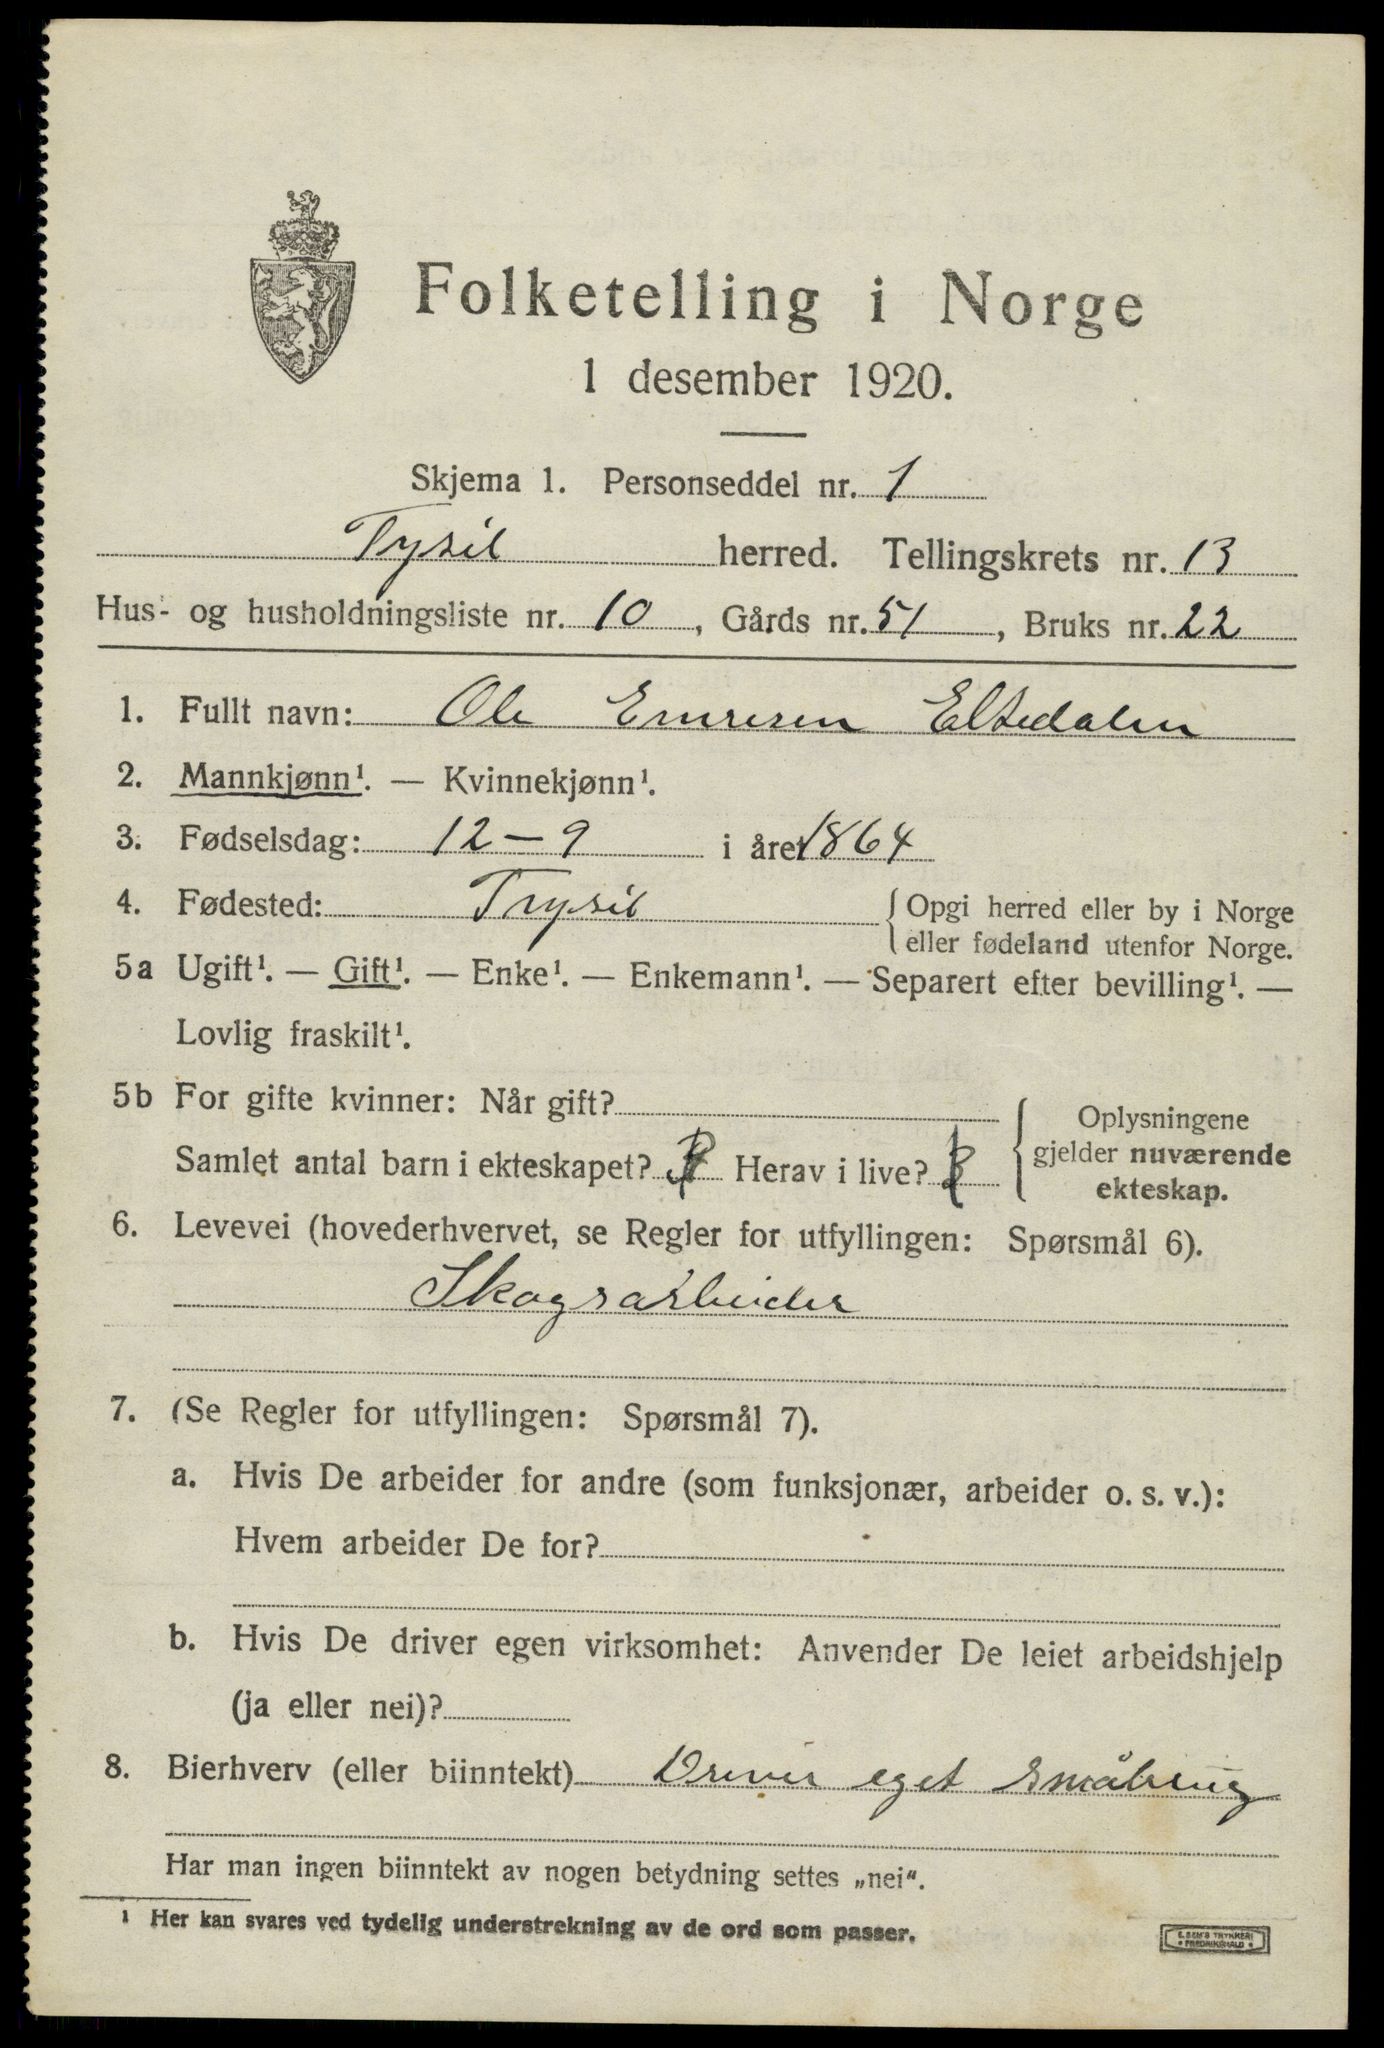 Folketelling i Norge
1 desember 1920.
Skjema 1. Personseddel nr. 1
Tysil herred. Tellingskrets nr. 13
Hus- og husholdningsliste nr. 10, Gårds nr. 51, Bruks nr. 22
1. Fullt navn: Ole Emresen Eltedalen
2. Mannkjønn¹. — Kvinnekjønn¹.
3. Fødselsdag: 12-9 i året 1864
4. Fødested: Trysil {Opgi herred eller by i Norge
eller fødeland utenfor Norge.
5a Ugift¹. — Gift¹. — Enke¹. — Enkemann¹. — Separert efter bevilling¹. —
Lovlig fraskilt¹.
5b For gifte kvinner: Når gift?
Samlet antal barn i ekteskapet? Herav i live?
Oplysningene
gjelder nuværende
ekteskap.
6. Levevei (hovederhvervet, se Regler for utfyllingen: Spørsmål 6).
Skogsarbeider
7. (Se Regler for utfyllingen: Spørsmål 7).
a. Hvis De arbeider for andre (som funksjonær, arbeider o. s. v.):
Hvem arbeider De for?
b. Hvis De driver egen virksomhet: Anvender De leiet arbeidshjelp
(ja eller nei)?
8. Bierhverv (eller biinntekt) Driver eget Småbrug
Har man ingen biinntekt av nogen betydning settes „nei“.
¹ Her kan svares ved tydelig understrekning av de ord som passer.
E. SEM'S TRYKKERI
• FREDRIKSHALD •